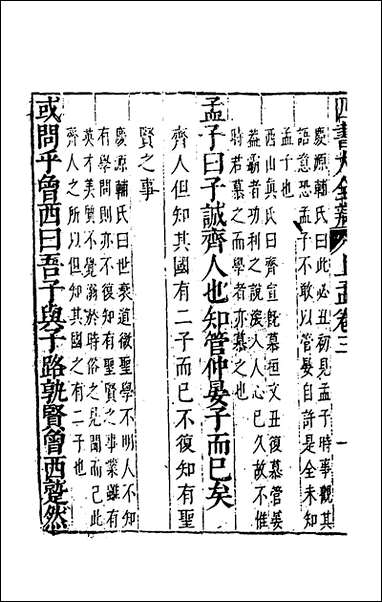 四書大全辯 上孟卷三 一
慶源輔氏曰此必丑初見孟子時事觀其
語意恐孟子不敢以管晏自許是全未知
孟子也
西山真氏曰齊宣旣慕桓文丑復慕管晏
葢霸者功利之說深入人心已久故不惟
時君慕之而學者亦慕之
孟子曰子誠齊人也知管仲晏子而已矣
齊人但知其國有二子而已不復知有聖
賢之事
慶源輔氏曰世衰道微聖學不明人不知
有學問則亦不復知有聖賢之事業雖有
英才美質不覺溺於時俗之見聞而已此
齊人之所以但知其國之有二子也
或問乎曾西曰吾子與子路孰賢曾西蹵然